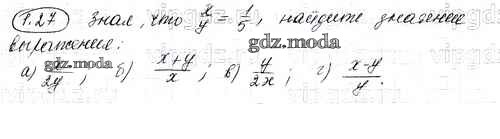 1.27 Зная, что x/y = 1/5, найдите значение
выражения:
gdz.moda
а) x/2y, б) (x+y)/x; в) y/2x; г) (x-y)/y.
gdz.moda